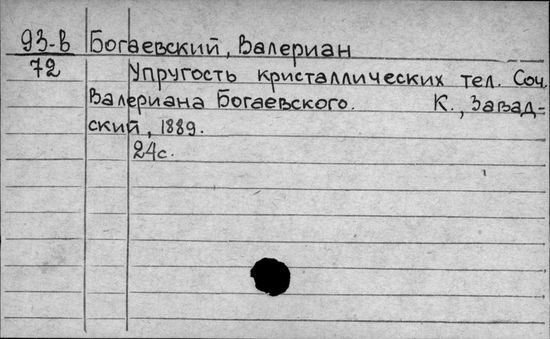 93-В Богаевский, Валериан
72 Упругость кристаллических тел. Соч.
Валериана Богаевского. К., Завад=
ский, 1889.
24с.